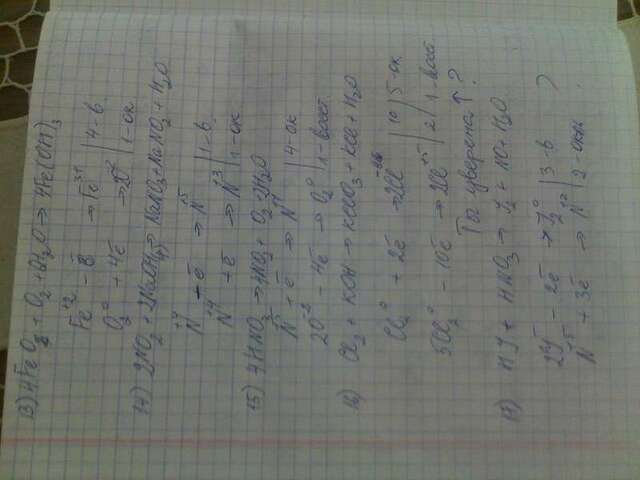 13) 4FeO₂ + O₂ + 6H₂O → 4Fe(OH)₃
Fe⁺² - ē → Fe³⁺ | 4 - в
O₂⁰ + 4ē → 2O⁻² | 1 - ок
14) 2NO₂ + 2NaOH → NaNO₃ + NaNO₂ + H₂O
N⁺⁴ - ē → N⁺⁵ | 1 - в
N⁺⁴ + ē → N⁺³ | 1 - ок
15) 4HNO₃ → 4NO₂ + O₂ + 2H₂O
N⁺⁵ + ē → N⁺⁴ | 4 ок
2O⁻² - 4ē → O₂⁰ | 1 - восст
16) Cl₂ + KOH → KClO₃ + KCl + H₂O
Cl₂⁰ + 2ē → 2Cl⁻ | 10 | 5 - ок
5Cl₂⁰ - 10ē → 2Cl⁺⁵ | 2 | 1 - восст
Ты уверена ↑ ?
17) HJ + HNO₃ → J₂ + NO + H₂O
2J⁻ - 2ē → J₂⁰ | 3 - в ?
N⁺⁵ + 3ē → N⁺² | 2 - окис